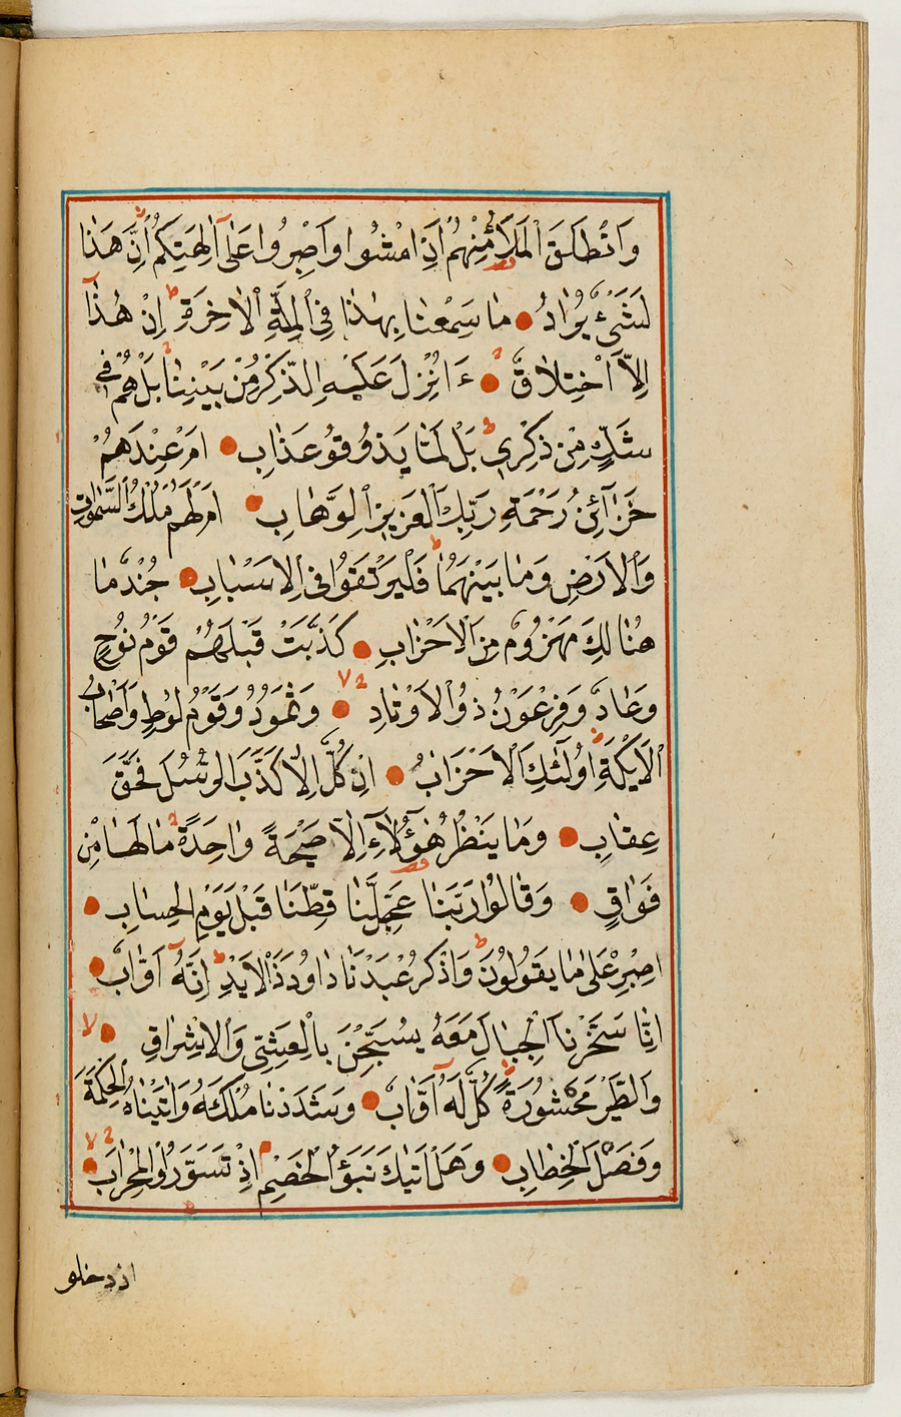 وَانْطَلَقَ الْمَلَأُ مِنْهُمْ اَنِ امْشُوا وَاصْبِرُوا عَلٰٓى اٰلِهَتِكُمْ اِنَّ هٰذَا
لَشَىْءٌ يُرَادُ مَا سَمِعْنَا بِهٰذَا فِى الْمِلَّةِ الْاٰخِرَةِ اِنْ هٰذَٓا
اِلَّا اخْتِلَاقٌ ءَاُنْزِلَ عَلَيْهِ الذِّكْرُ مِنْ بَيْنِنَا بَلْ هُمْ فِى
شَكٍّ مِنْ ذِكْرِى بَلْ لَمَّا يَذُوقُوا عَذَابِ اَمْ عِنْدَهُمْ
خَزَٓائِنُ رَحْمَةِ رَبِّكَ الْعَزِيزِ الْوَهَّابِ اَمْ لَهُمْ مُلْكُ السَّمٰوَاتِ
وَالْاَرْضِ وَمَا بَيْنَهُمَا فَلْيَرْتَقُوا فِى الْاَسْبَابِ جُنْدٌ مَا
هُنَالِكَ مَهْزُومٌ مِنَ الْاَحْزَابِ كَذَّبَتْ قَبْلَهُمْ قَوْمُ نُوحٍ
وَعَادٌ وَفِرْعَوْنُ ذُو الْاَوْتَادِ وَثَمُودُ وَقَوْمُ لُوطٍ وَاَصْحَابُ
الْاَيْكَةِ اُولٰٓئِكَ الْاَحْزَابُ اِنْ كُلٌّ اِلَّا كَذَّبَ الرُّسُلَ فَحَقَّ
عِقَابِ وَمَا يَنْظُرُ هٰٓؤُلَٓاءِ اِلَّا صَيْحَةً وَاحِدَةً مَا لَهَا مِنْ
فَوَاقٍ وَقَالُوا رَبَّنَا عَجِّلْ لَنَا قِطَّنَا قَبْلَ يَوْمِ الْحِسَابِ
اِصْبِرْ عَلٰى مَا يَقُولُونَ وَاذْكُرْ عَبْدَنَا دَاوُدَ ذَا الْاَيْدِ اِنَّهُٓ اَوَّابٌ
اِنَّا سَخَّرْنَا الْجِبَالَ مَعَهُ يُسَبِّحْنَ بِالْعَشِىِّ وَالْاِشْرَاقِ
وَالطَّيْرَ مَحْشُورَةً كُلٌّ لَهُٓ اَوَّابٌ وَشَدَدْنَا مُلْكَهُ وَاٰتَيْنَاهُ الْحِكْمَةَ
وَفَصْلَ الْخِطَابِ وَهَلْ اَتٰيكَ نَبَؤُا الْخَصْمِ اِذْ تَسَوَّرُوا الْمِحْرَابَ
اذ دخلو